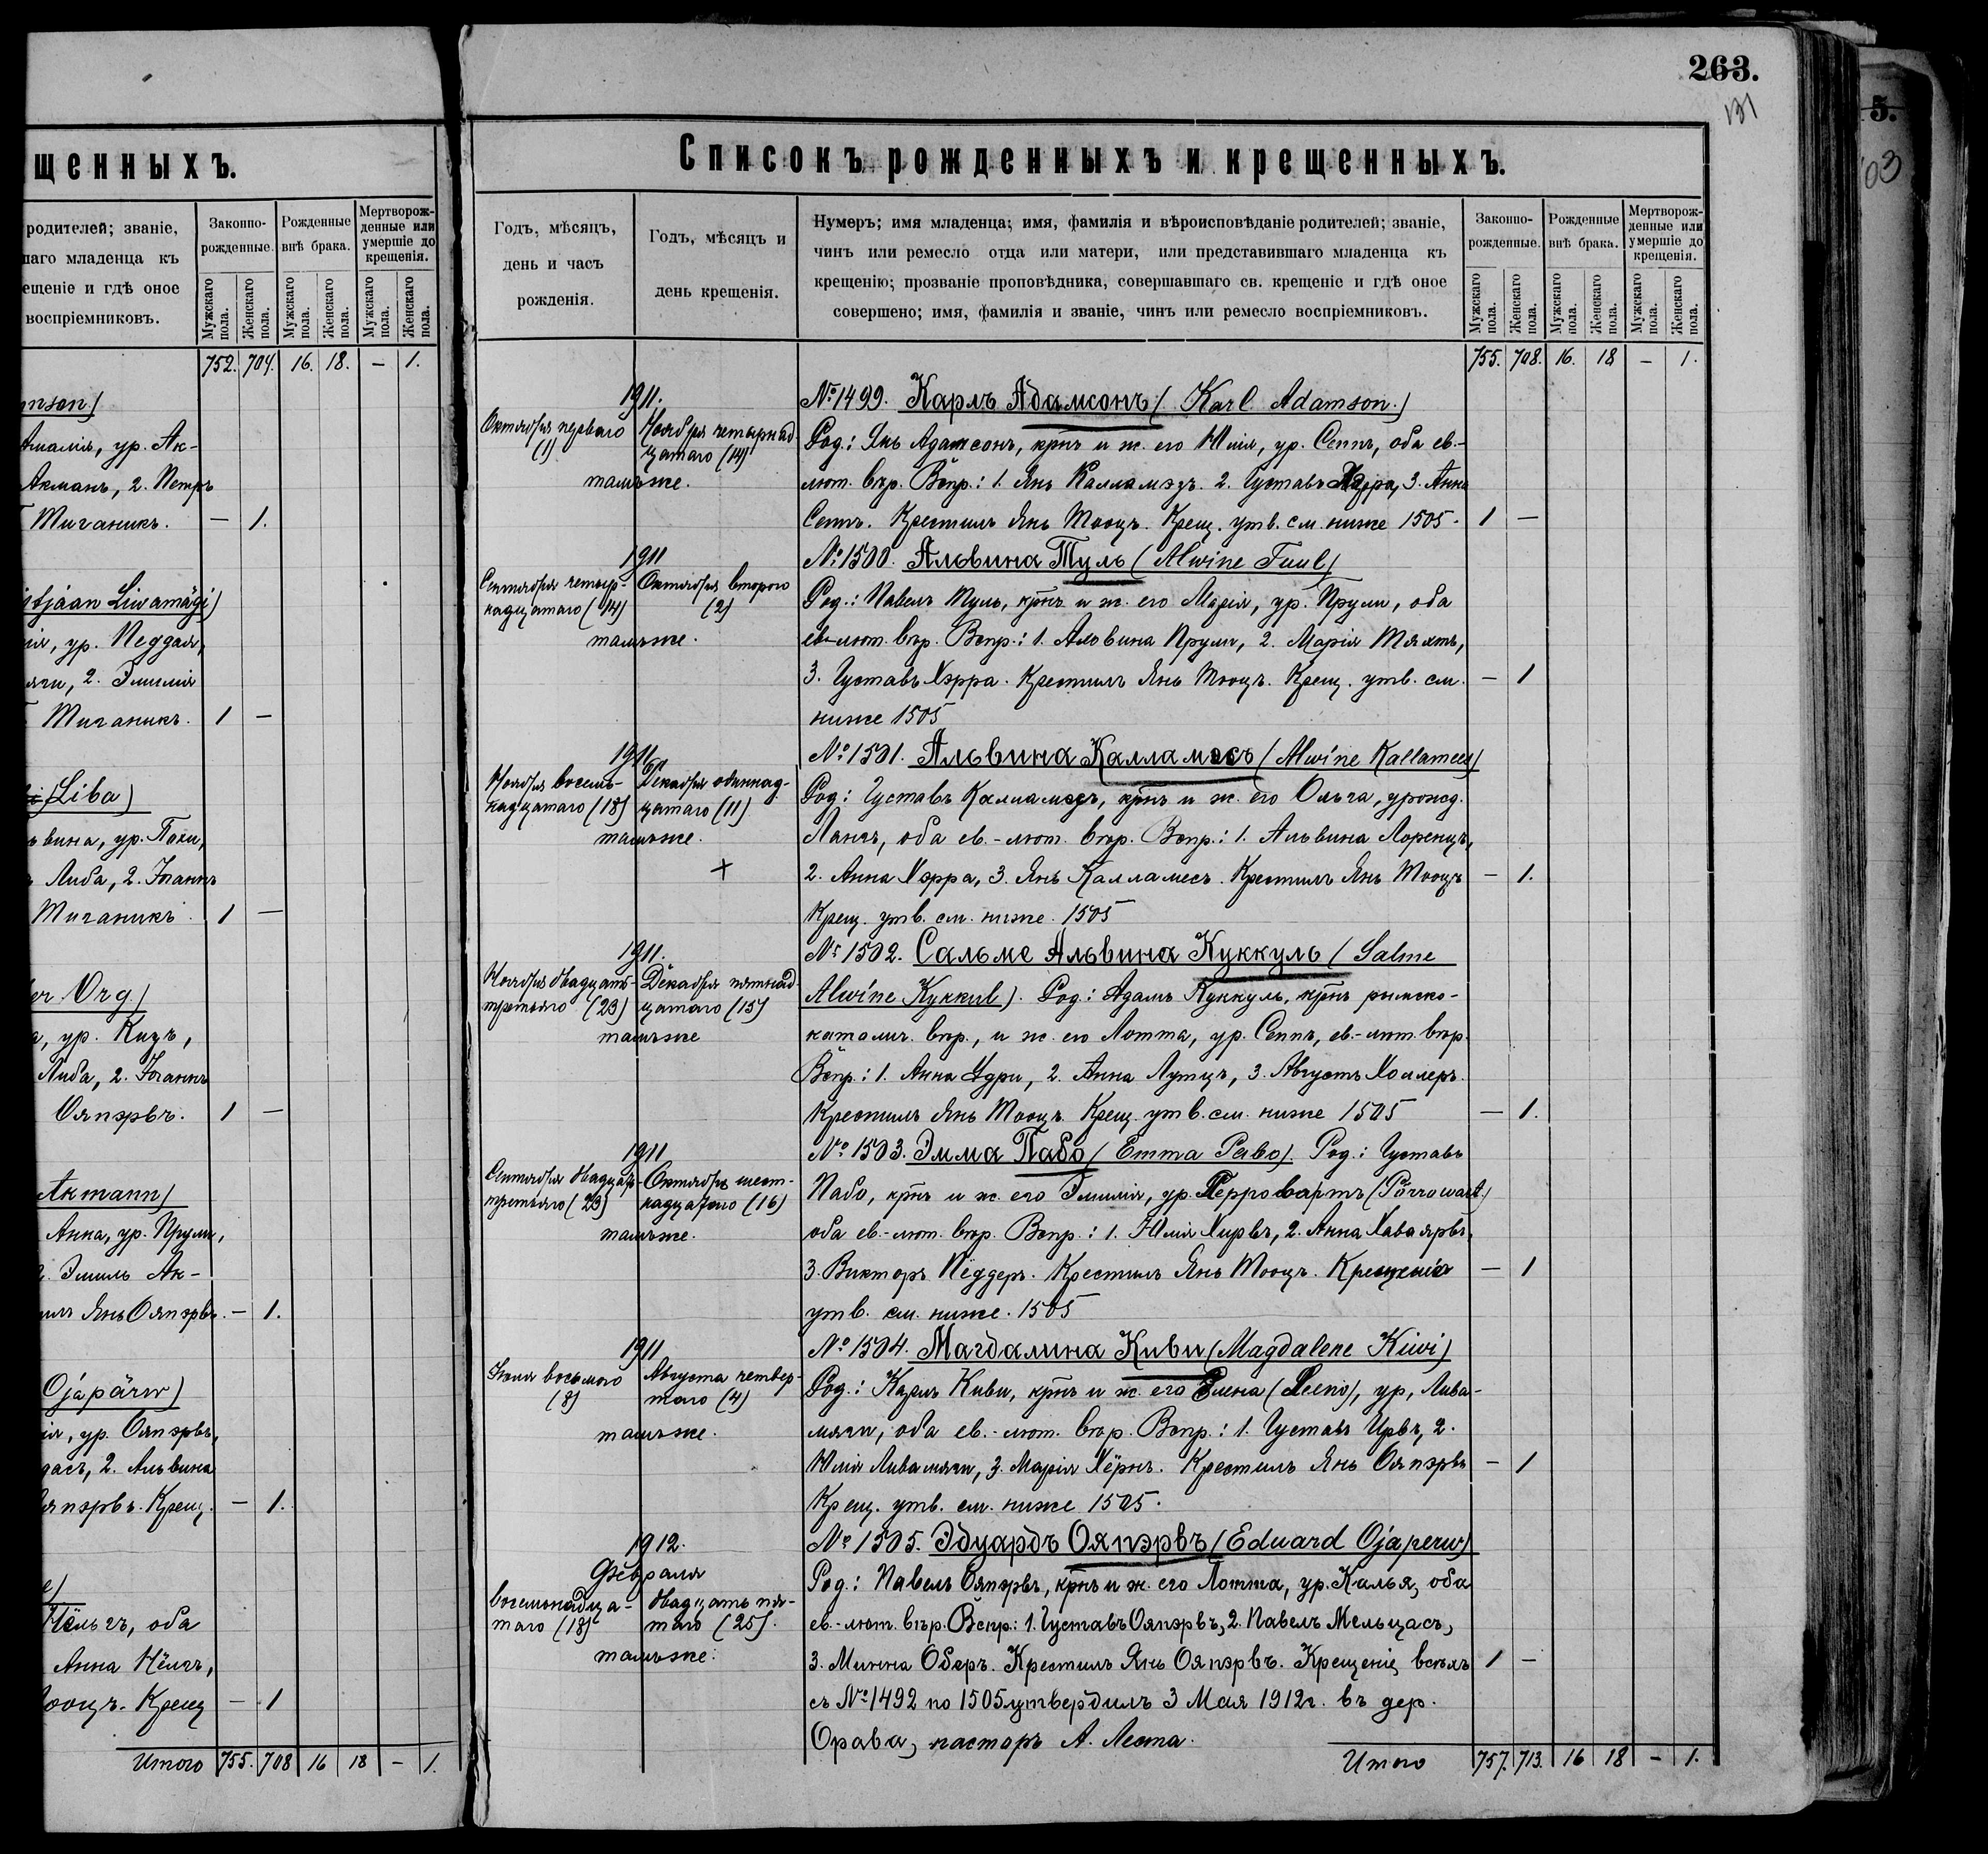 щенныхъ.
родителей; званіе,
шаго младенца къ
ещеніе и гдѣ оное
воспріемниковъ.
Законно-
рожденные.
Рожденные
внѣ брака.
Мертворож-
денные или
умершіе до
крещенія.
Мужскаго пола.
Женскаго пола.
Мужскаго пола.
Женскаго пола.
Мужскаго пола.
Женскаго пола.
752. 704. 16. 18. — 1.
mson)
Амалія, ур. Ак-
Акманъ, 2. Петръ
Миганикъ. — 1.
stjaan Liwamägi)
ія, ур. Педдая,
яги, 2. Эмилія
Миганикъ. 1 —
(Liba)
ьвина, ур.
Либа, 2. Іоаннъ
Миганикъ. 1 —
er Org)
а, ур. Кизъ,
Либа, 2. Іоаннъ
Ояпэрвъ. 1 —
Akmann)
Анна, ур. Прули,
2. Эмиль Ак-
илъ Янъ Ояпэрвъ. — 1.
Ojapärw)
ія, ур. Ояпэрвъ,
дасъ, 2. Альвина
япэрвъ. Крещ. — 1.
оба
Анна
ооцъ. Крещ — 1
Итого 755. 708 16 18 — 1.
263.
131
Списокъ рожденныхъ и крещенныхъ.
Годъ, мѣсяцъ,
день и часъ
рожденія.
Годъ, мѣсяцъ и
день крещенія.
Нумеръ; имя младенца; имя, фамилія и вѣроисповѣданіе родителей; званіе,
чинъ или ремесло отца или матери, или представившаго младенца къ
крещенію; прозваніе проповѣдника, совершавшаго св. крещеніе и гдѣ оное
совершено; имя, фамилія и званіе, чинъ или ремесло воспріемниковъ.
Законно-
рожденные.
Рожденные
внѣ брака.
Мертворож-
денные или
умершіе до
крещенія.
Мужскаго пола.
Женскаго пола.
Мужскаго пола.
Женскаго пола.
Мужскаго пола.
Женскаго пола.
755. 708. 16. 18 — 1.
1911. №1499. Карлъ Адамсонъ (Karl Adamson.)
Октября перваго Ноября четырнад- Род.: Янъ Адамсонъ, крнъ и ж. его Юлія, ур. Сеппъ, оба ев.-
(1) цатаго (14)
тамъ же. лют. вѣр. Вспр.: 1. Янъ Калламэзъ. 2. Густавъ Хэрра, 3. Анна
Сеппъ. Крестилъ Янъ Тооцъ. Крещ. утв. см. ниже 1505. 1 —
1911 №1500. Альвина Туль (Alwine Tuul)
Сентября четыр- Октября второго
надцатаго (14) (2) Род.: Павелъ Туль, крнъ и ж. его Марія, ур. Прули, оба
тамъ же. ев-лют. вѣр. Вспр.: 1. Альвина Прули, 2. Марія Тяхтъ,
3. Густавъ Хэрра. Крестилъ Янъ Тооцъ. Крещ. утв. см. — 1
ниже 1505
1911. №1501. Альвина Калламэсъ (Alwine Kallamees)
Ноября восемь- Декабря одиннад-
надцатаго (18) цатаго (11) Род.: Густавъ Калламэзъ, крнъ и ж. его Ольга, урожд.
тамъ же. Лангъ, оба ев.-лют. вѣр. Вспр.: 1. Альвина Лоренцъ,
+ 2. Анна Хэрра, 3. Янъ Калламесъ. Крестилъ Янъ Тооцъ — 1.
Крещ. утв. см. ниже. 1505
1911. №1502. Сальме Альвина Куккуль (Salme
Ноября двадцать Декабря пятнад- Alwine Kukkul). Род.: Адамъ Куккуль, крнъ римско-
третьяго (23) цатаго (15)
тамъ же католич. вѣр., и ж. его Лотта, ур. Сеппъ, ев.-лют. вѣр.
Вспр.: 1. Анна Удри, 2. Анна Лутцъ, 3. Августъ Холлеръ.
Крестилъ Янъ Тооцъ. Крещ. утв. см. ниже 1505 — 1.
1911 №1503. Эмма Пабо (Emma Pabo). Род.: Густавъ
Сентября двадцать Октября шест- Пабо, крнъ и ж. его Эмилія, ур. Перровартъ (Pörrowart)
третьяго (23) надцатаго (16)
тамъ же. оба ев.-лют. вѣр. Вспр.: 1. Юлія Хирвъ, 2. Анна Хаваярвъ,
3. Викторъ Пёддеръ. Крестилъ Янъ Тооцъ. Крещеніе — 1
утв. см. ниже. 1505
1911 №1504. Магдалина Киви (Magdalene Kiwi)
Іюля восьмого Августа четвер-
(8) таго (4) Род.: Карлъ Киви, крнъ и ж. его Елена (Leeno), ур. Лива-
тамъ же. мяги, оба ев.-лют. вѣр. Вспр.: 1. Густавъ Ирвъ, 2.
Юлія Ливамяги, 3. Марія Хёрнъ. Крестилъ Янъ Ояпэрвъ — 1
Крещ. утв. см. ниже 1505.
1912. №1505. Эдуардъ Ояпэрвъ (Eduard Ojaperw)
Февраля
восемнадца- двадцать пя- Род.: Павелъ Ояпэрвъ, крнъ и ж. его Лотта, ур. Калья, оба
таго (18) таго (25). ев.-лют. вѣр. Вспр.: 1. Густавъ Ояпэрвъ, 2. Павелъ Мельцасъ,
тамъ же. 3. Минна Оберъ. Крестилъ Янъ Ояпэрвъ. Крещеніе всѣхъ 1 —
съ №1492 по 1505 утвердилъ 3 Мая 1912г. въ дер.
Орава, пасторъ А. Леста.
Итого 757. 713. 16 18 — 1.
5.
03